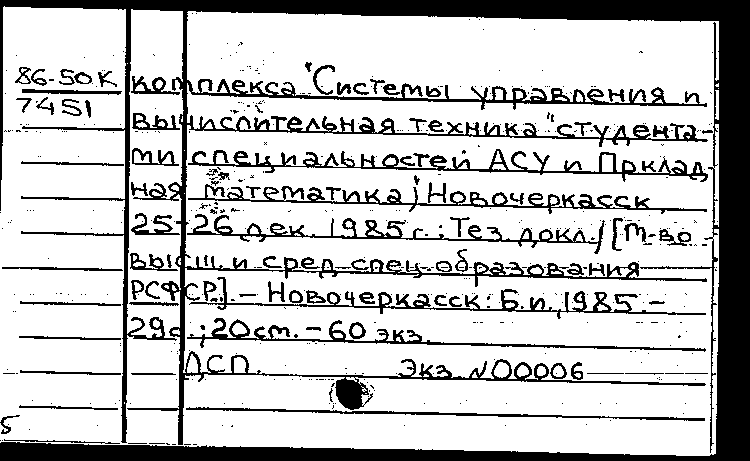 86-50К комплекса "Системы управления и
7451 вычислительная техника" студента-
ми специальностей АСУ и Приклад
ная математика", Новочеркасск,
25-26 дек. 1985 г.: Тез. докл./[М-во
высш. и сред. спец. образования
РСФСР]. - Новочеркасск: Б.и., 1985. -
29с.; 20 см. - 60 экз.
ДСП. Экз. N 00006
5